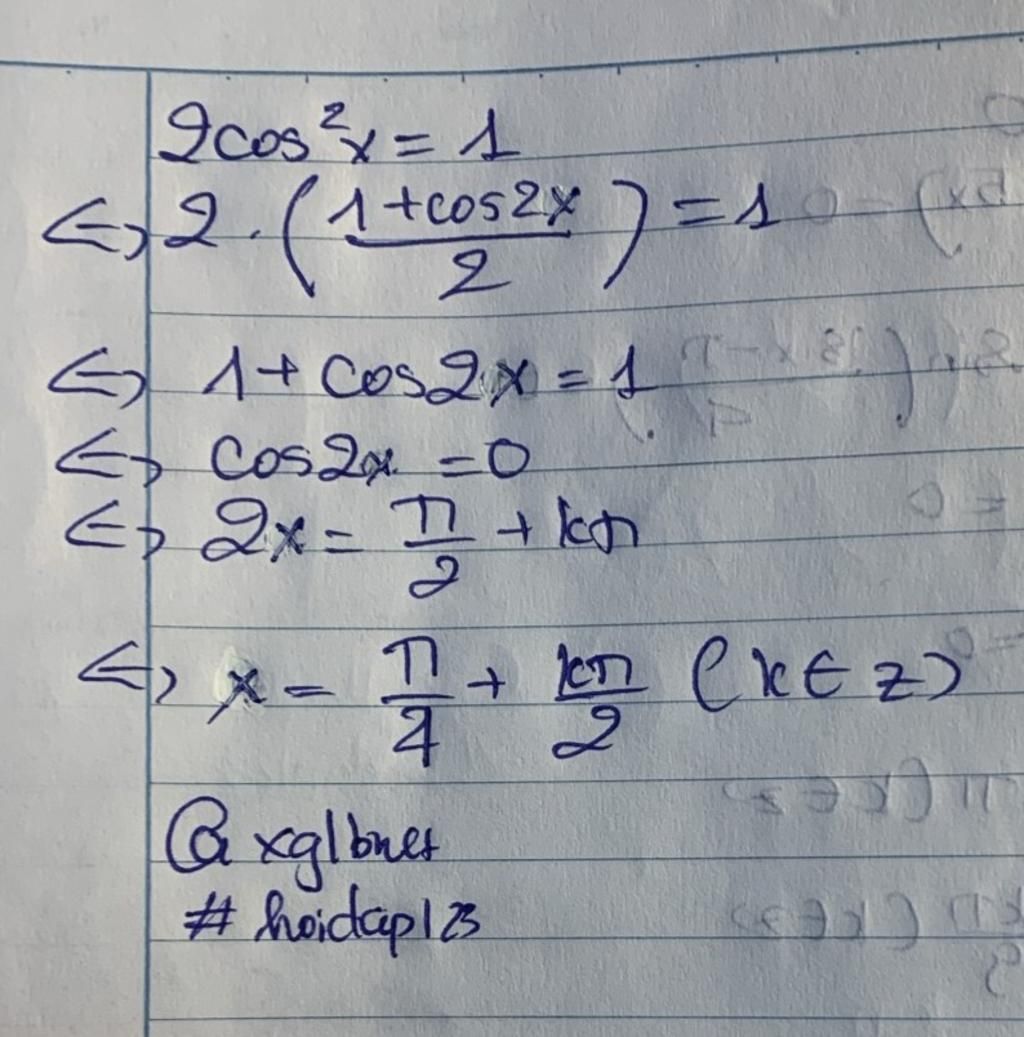 2cos²x = 1
<=> 2 . ( (1+cos2x)/2 ) = 1
<=> 1 + cos2x = 1
<=> cos2x = 0
<=> 2x = π/2 + kπ
<=> x = π/4 + kπ/2 (k ∈ z)
# hoidap123